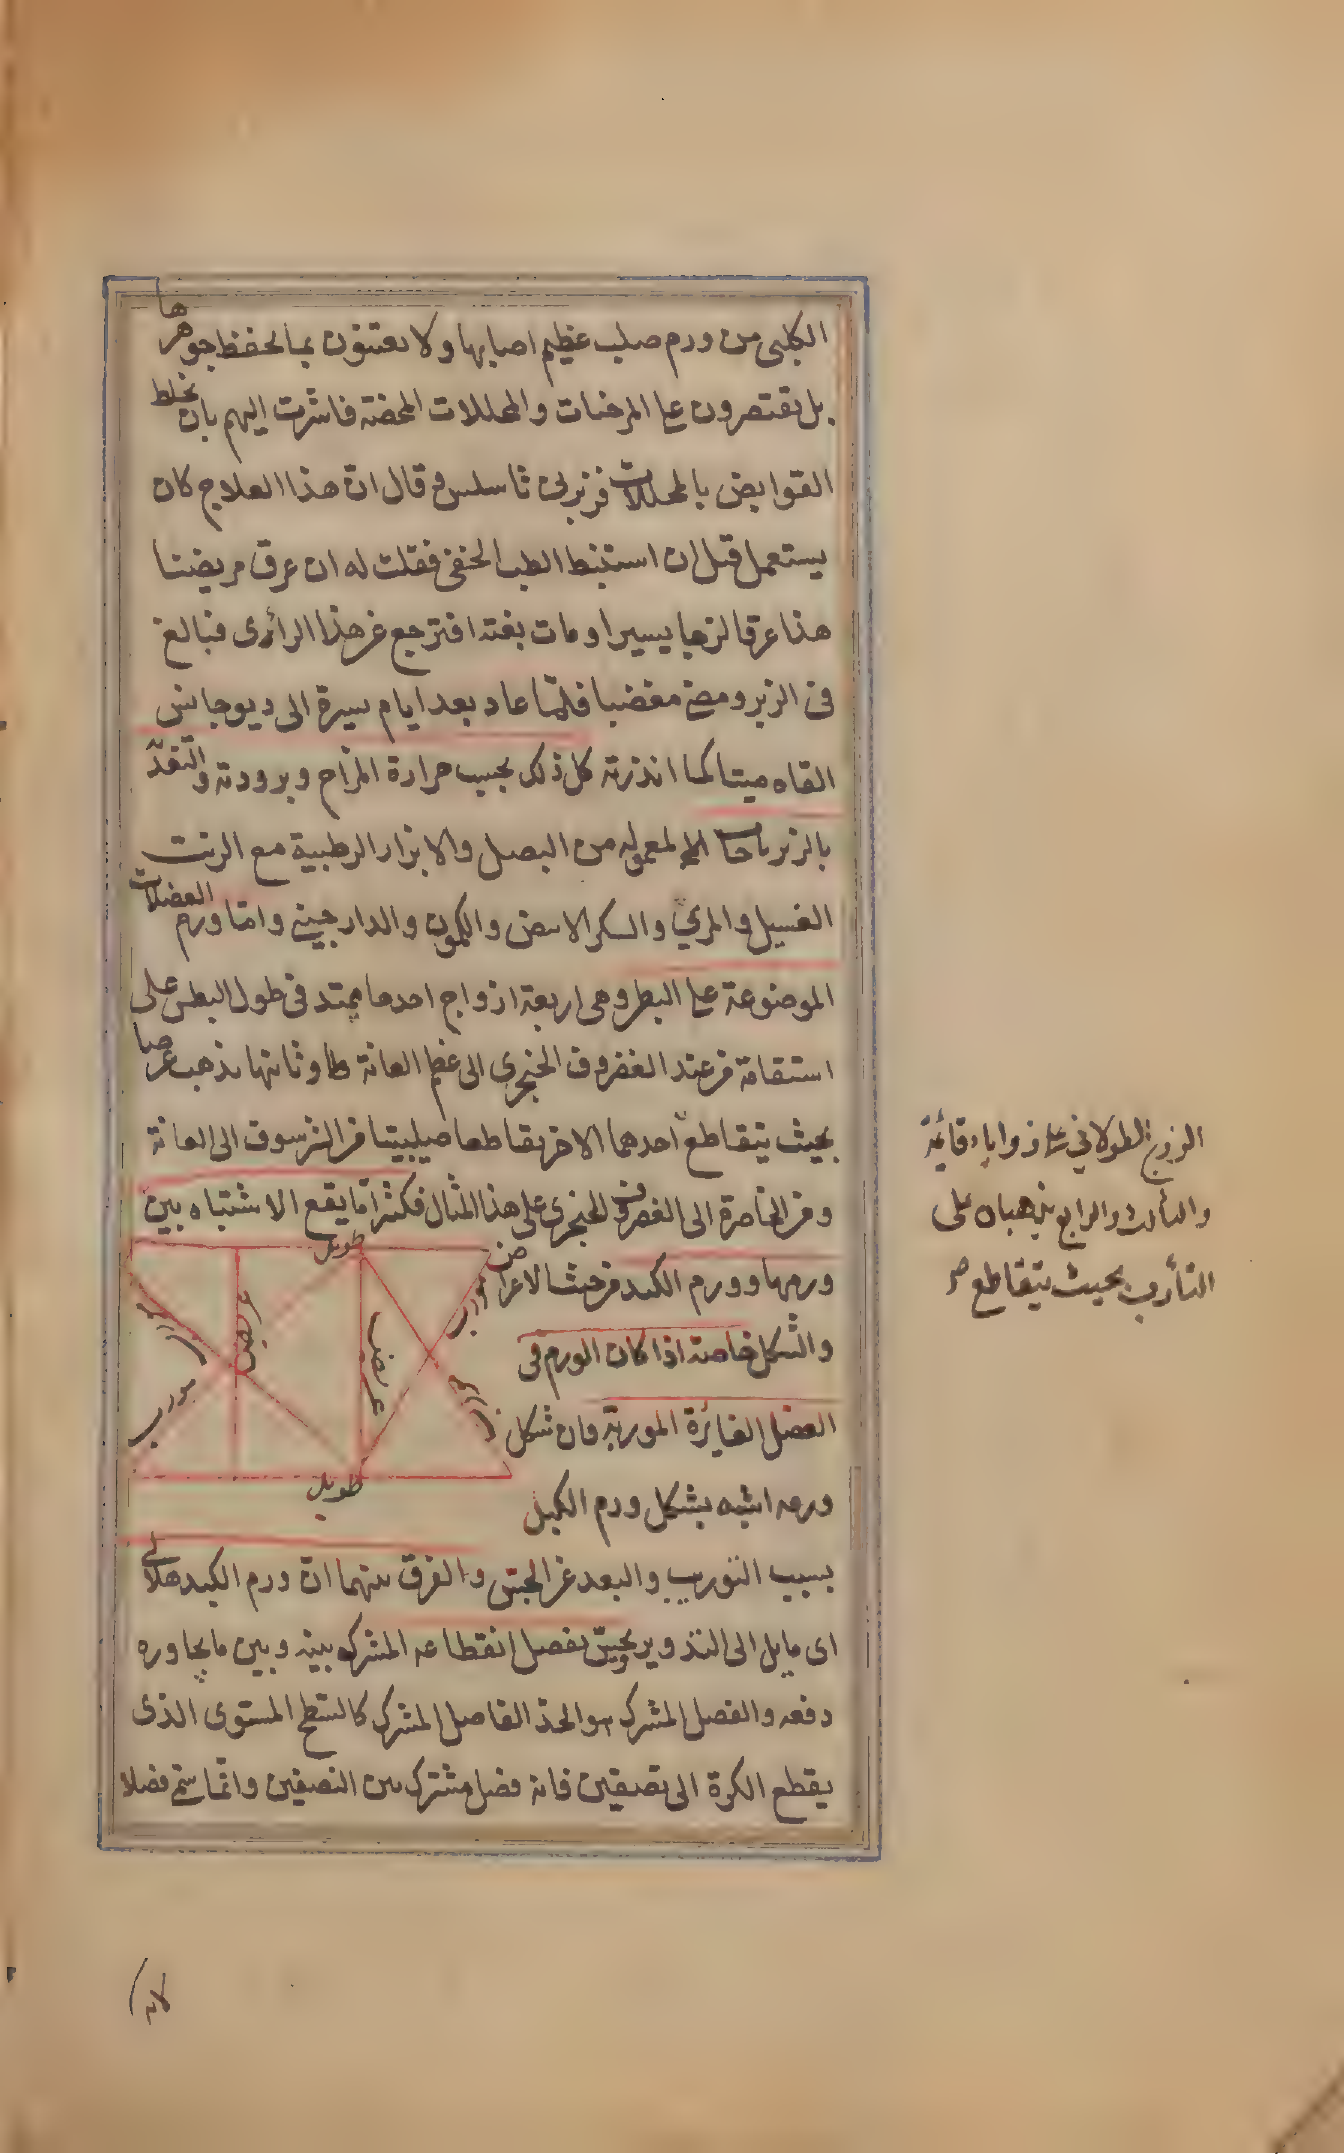 الكلبى من ورم صلب عظيم اصابها ولا يعتنون بما يحفظ جوهرها
بل يقتصرون على المرخيات والمحللات المحضة فاشرت اليهم بان يخلط
القوابض بالمحللات فزبرنى ثاسلس و قال ان هذا العلاج كان
يستعمل قبل ان استنبط الطب الحنفى فقلت له ان عرق مريضنا
هذا عرقا لزجا يسيرا ومات بغتة افترجع عن هذا الرأى فبالغ
فى الزبر ومضى مغضبا فلما عاد بعد ايام يسيرة الى ديوجانس
القاه ميتا كما انذرته كل ذلك بحسب حرارة المزاج وبرودته والتغذى
بالزيرباجات المعمولة من البصل والابزار الرطبية مع الزيت
الغسيل والمري والسكر الابيض والكمون والدارجينى واما ورم العضلات
الموضوعة على البطن وهى اربعة ازواج احدها يمتد فى طول البطن على
استقامة من عند الغضروف الخنجرى الى عظم العانة طا وثانيها يذهب عرضا
بحيث يتقاطع احدهما الاخر تقاطعا صليبيتا من الشرسوف الى العانة
ومن الخاصرة الى الغضروف الخنجرى على هذا المثال فكثيرا ما يقع الاشتباه بين
ورمها وورم الكبد من حيث الاعراض
والشكل خاصة اذا كان الورم فى
العضل الغايرة الموربة فان شكل
ورمه اشبه بشكل ورم الكبد
طويل
مورب
عريض
عريض
مورب
مورب
مورب
طويل
بسبب التوريب والبعد عن الجس والفرق بينهما ان ورم الكبد هلالى
اى مايل الى التدوير يحس بفصل انقطاعه المشترك بينه وبين ما يجاوره
دفعة والفصل المشترك هو الحد الفاصل المشترك كالسطح المستوى الذى
يقطع الكرة الى نصفين فانه فصل مشترك بين النصفين وانما سمى فصلا
الزوج الطولانى على زوايا قائمة
والثالث والرابع يذهبان على
التأرب بحيث يتقاطع
لانه